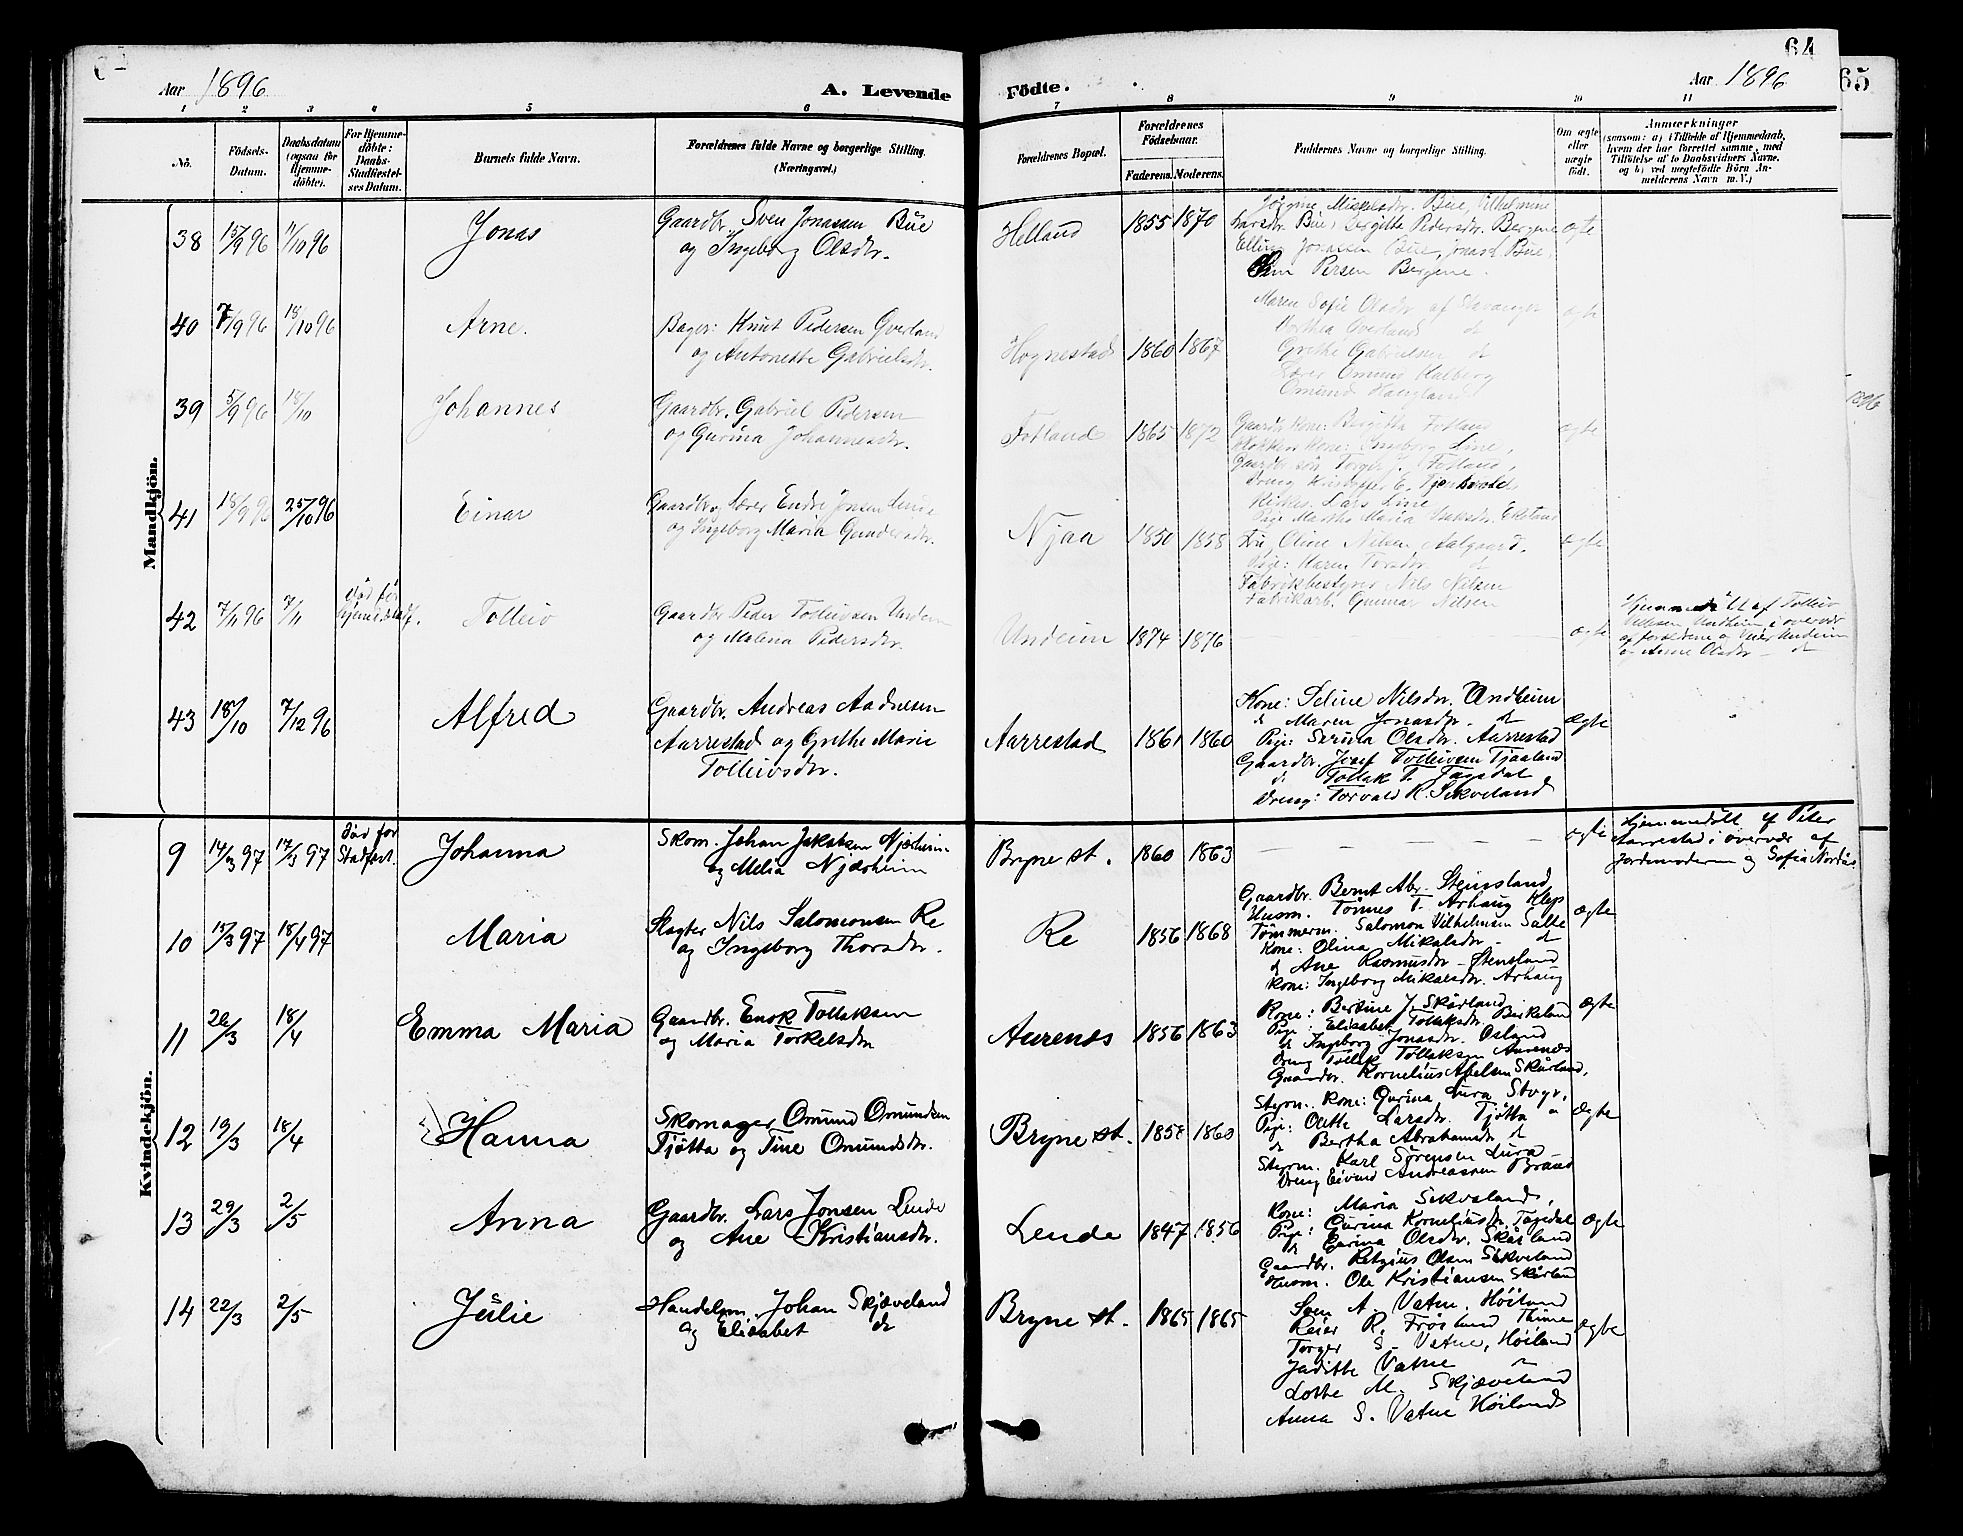 64
65
Aar 1896
A. Levende
Födte.
Aar 1896
1 2 3 4 5 6 7 8 9 10 11
No.
Födsels-
Datum.
Daabsdatum
(ogsaa for
Hjemme-
döbte).
For Hjemme-
döbte:
Daabs-
Stadfæstel-
ses Datum.
Barnets fulde Navn.
Forældrenes fulde Navne og borgerlige Stilling.
(Næringsvei.)
Forældrenes Bopæl.
Forældrenes
Födselsaar.
Faderens. Moderens.
Faddernes Navne og borgerlige Stilling.
Om ægte
eller
uægte
födt.
Anmærkninger
(saasom: a) i Tilfælde af Hjemmedaab,
hvem der har forrettet samme, med
Tilföielse af to Daabsvidners Navne,
og b) ved uægtefödte Börn An-
melderens Navn m. V.)
Mandkjön.
38 15/9 96 11/10 96 Jonas
Gaardbr. Sven Jonassen Bue
og Ingeborg Olsdtr.
Helland 1855 1870
Mikkelsdtr. Bue, Vilhelmine
Larsdtr. Bue, Birgitte Pedersdtr. Bergene
Elling Jonassen Bue, Jonas Bue,
Persen Bergene.
ægte
40 7/9 96 18/10 96 Arne.
Bager: Knut Pedersen Qverland
og Antonette Gabrielsdtr.
Hognestad 1860 1867
Maren Sofie Olsdtr af Stavanger
Dorthea Overland do
Grethe Gabrielsen do
Lærer
Omund
ægte
39 5/9 96 18/10 Johannes
Gaardbr. Gabriel Pedersen
og Gurina Johannesdtr.
Fotland 1865 1872
Gaardbr Kone: Birgitha Fotland
Kone: Ingeborg Line,
Gaardbr. søn Torger J. Fotland,
Dreng
Lars Line
ægte
41 18/9 96 25/10 96 Einar
Gaardbr. Lærer Endre Jonsen Line
og Ingeborg Maria Gundersdtr.
Njaa 1850 1858
Pige Martha Maria
Fru Oline Nilsen Aalgaard.
Pige: Karen Torsdtr. do
Fabrikbestyrer Nils Nilsen
Fabrikarb. Gunnar Nilsen
ægte
42 7/11 96 7/11 død før
hjemd. stadf.
Tolleiv
Gaardbr Peder Tolleivsen Undeim
og Malena Pedersdtr.
Undeim 1874 1876
ægte
Hjemmedøbt af Tolleiv
Undheim i overvær
af forældrene og Peder Undeim
og Anne Olsdtr - do
43 18/10 7/12 96 Alfred
Gaardbr. Andreas Aadnesen
Aarrestad og Grethe Marie
Tolleivsdtr.
Aarrestad 1861 1860
Kone: Seline Nilsdtr. Undheim
do Maren Jonasdtr. do
Pige: Serina Olsdtr. Aarrestad
Gaardbr. Josef Tolleivsen Tjaaland
do Tollak T. Fagedal
Dreng: Torvald R. Sikveland
ægte
Kvindekjön.
9 14/3 97 17/3 97 død før
Stadfæst.
Johanna
Skom. Johan Jakobsen Njærheim
og Melia Njærheim
Bryne st. 1860 1863
ægte
Hjemmedøbt af Peter
Aarrestad i overvær af
Jordemoderen og Sofia Nordås
10 15/3 97 18/4 97 Maria
Slagter Nils Salomonsen Re
og Ingeborg Thorsdtr.
Re 1856 1868
Gaardbr. Bernt Abr. Stensland
Husm. Tønnes T. Arhaug Klep
Tømmerm. Salomon Vilhelmsen Salte
Kone: Olina Mikalsdtr - do
do Ane Rasmusdtr - Stensland
Kone: Ingeborg Mikalsdtr. Arhaug
ægte
11 26/3 18/4 Emma Maria
Gaardbr. Enok Tollaksen
og Maria Torkelsdtr
Aurenes 1856 1863
Kone: Bertine J. Skårland
Pige: Elisabet Tollaksdtr. Birkeland
do Ingeborg Jonasdtr. Osland
Dreng Tollak Tollaksen Aurenes
Gaardbr. Kornelius Abelsen Skårland,
ægte
12 19/3 18/4 Hanna
Skomager Omund Omundsen
Tjøtta og Tine Omundsdtr.
Bryne st. 1858 1860
Styrm. Kone: Gurina Lura Stvgr.
Pige: Oline Larsdtr. Tjøtta
do Bertha Abrahamsdtr do
Styrm. Karl Sørensen Lura
Dreng Eivind Andreassen Braud
ægte
13 29/3 2/5 Anna
Gaardbr. Lars Jonsen Lende
og Ane Kristiansdtr.
Lende 1847 1856
Kone: Maria Sikveland,
Pige: Gurina Korneliusdtr. Fagedal
do Gurina Olsdtr. Skårland
Gaardbr. Retzius Olsen Sikveland
Husm. Ole Kristiansen Skårland
ægte
14 22/3 2/5 Julie
Handelsm. Johan Skjæveland
og Elisabet do
Bryne st. 1865 1865
Sven A. Vatne, Høiland
Reier R. Frøslund Thime
Torger S. Vatne, Høiland
Juditte Vatne
Lotte M. Skjæveland
Anna S. Vatne Høiland
ægte
1896